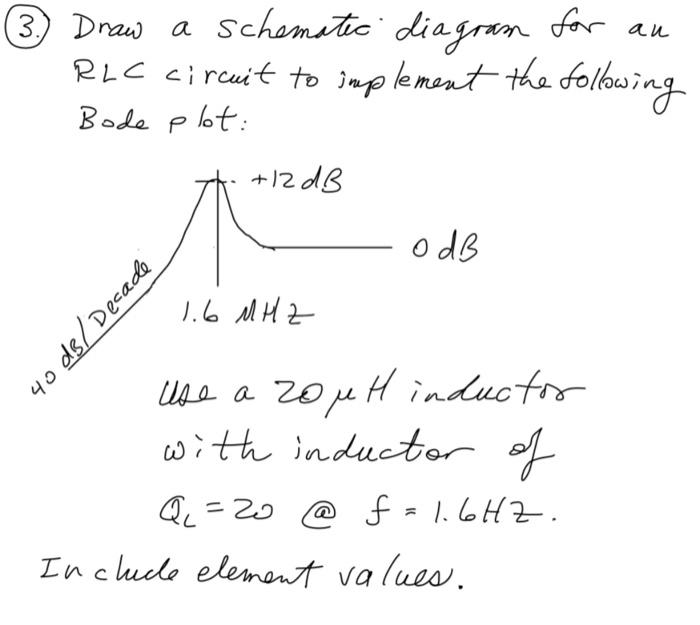 3. Draw a schematic diagram for an
RLC circuit to implement the following
Bode plot:
+12 dB
0 dB
40 dB/Decade
1.6 MHZ
Use a 20 μH inductor
with inductor of
QL = 20 @ f = 1.6HZ.
Include element values.